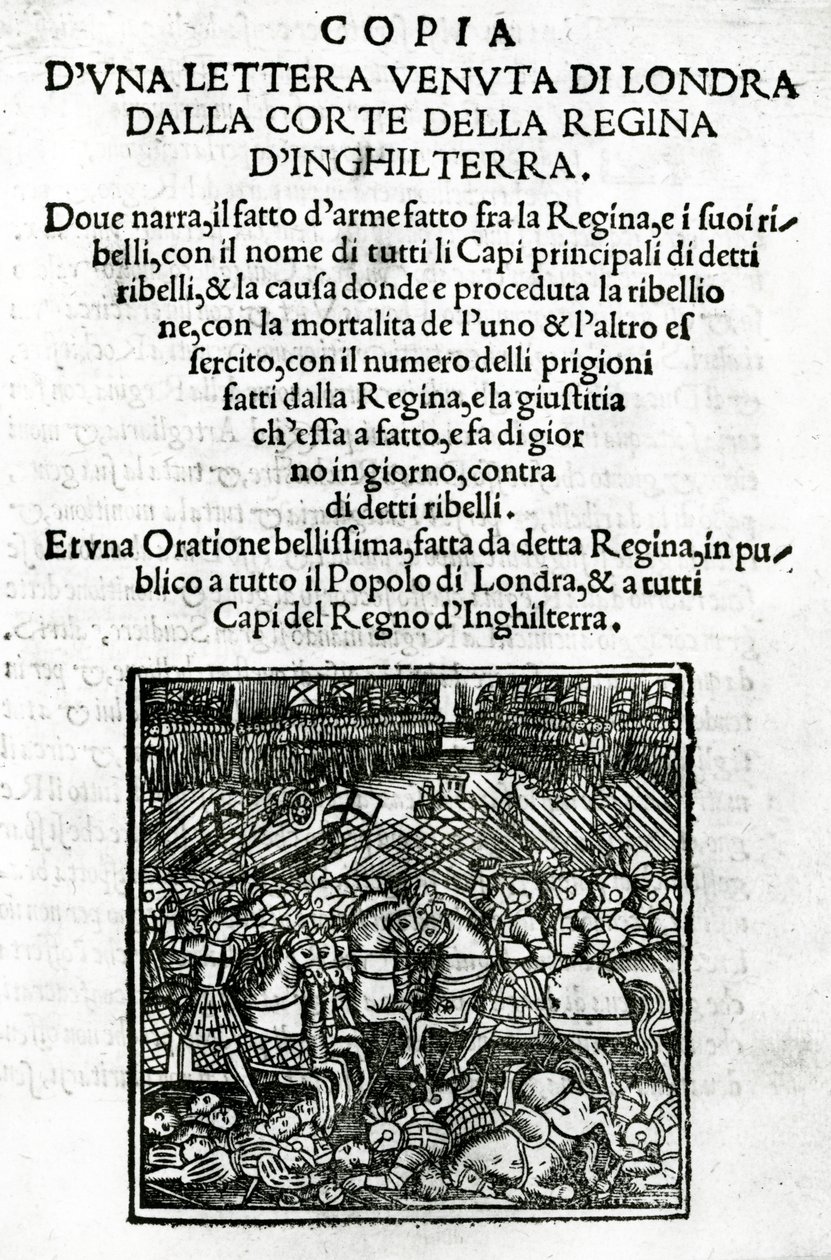 COPIA
D'VNA LETTERA VENVTA DI LONDRA
DALLA CORTE DELLA REGINA
D'INGHILTERRA.
Doue narra, il fatto d'arme fatto fra la Regina, e i ſuoi ri-
belli, con il nome di tutti li Capi principali di detti
ribelli, & la cauſa donde e proceduta la ribellio
ne, con la mortalita de l'uno & l'altro eſ
ſercito, con il numero delli prigioni
fatti dalla Regina, e la giuſtitia
ch'eſſa a fatto, e fa di gior
no in giorno, contra
di detti ribelli.
Et vna Oratione belliſſima, fatta da detta Regina, in pu-
blico a tutto il Popolo di Londra, & a tutti
Capi del Regno d'Inghilterra.